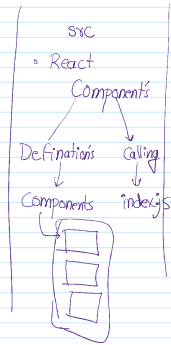 src
React
Component's
Defination's Calling
Components index.js